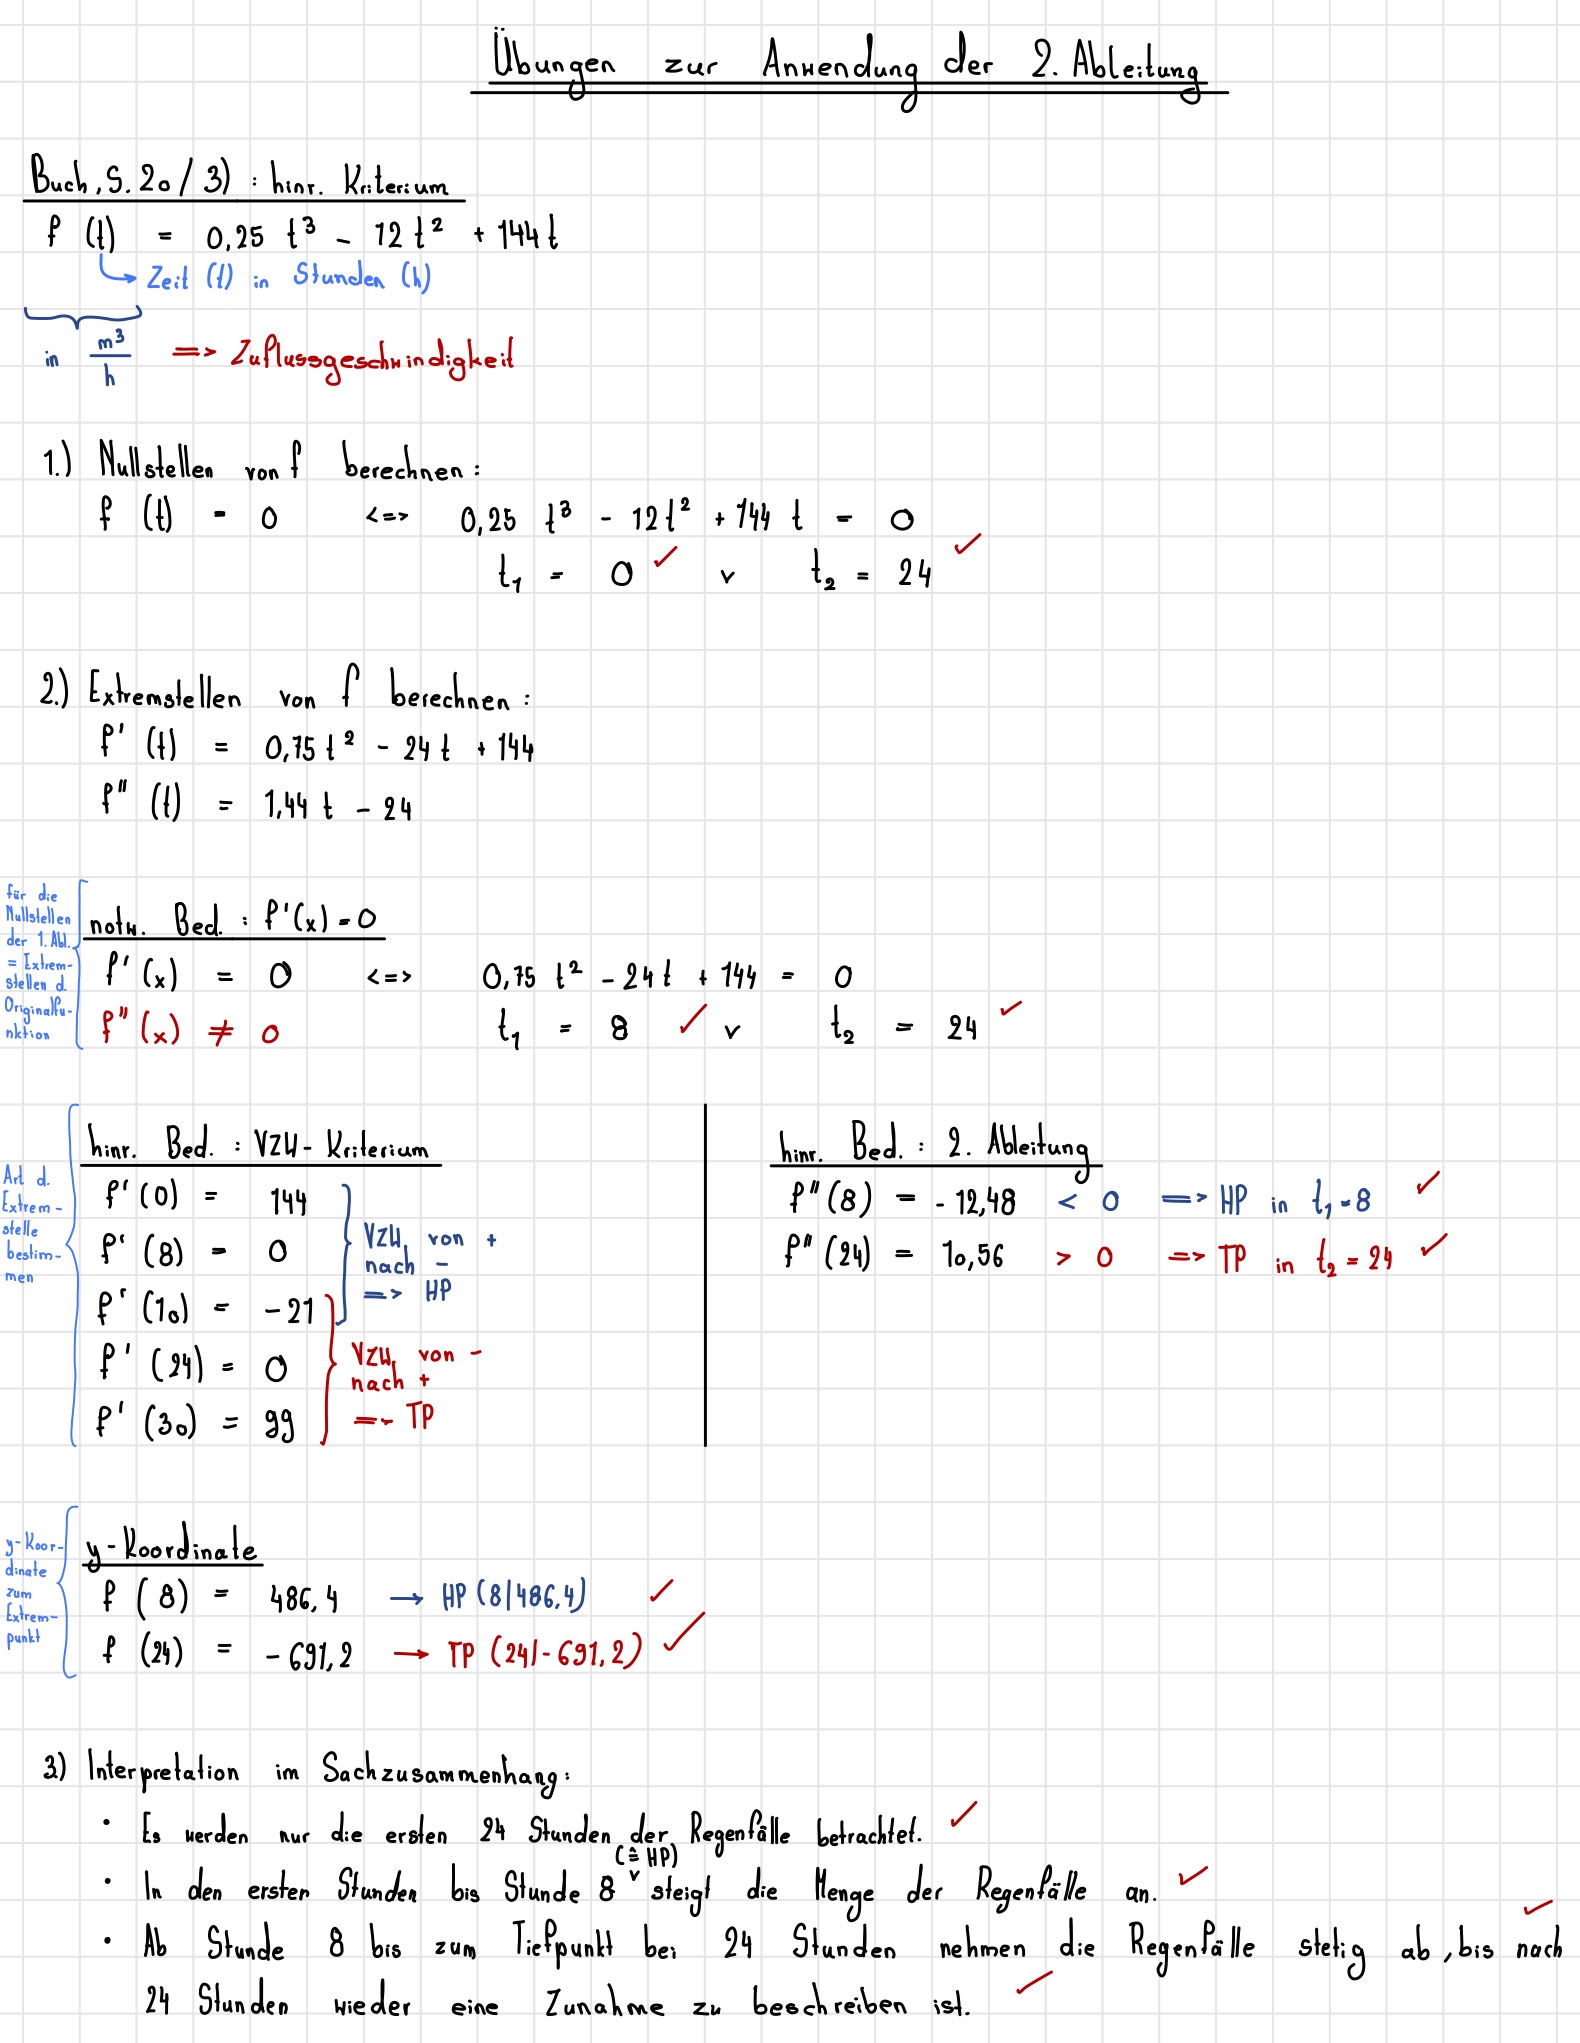 Übungen zur Anwendung der 2. Ableitung
Buch, S. 20 / 3) : hinr. Kriterium
f (t) = 0,25 t³ - 12 t² + 144 t
Zeit (t) in Stunden (h)
in m³/h => Zuflussgeschwindigkeit
1.) Nullstellen von f berechnen :
f (t) = 0 <=> 0,25 t³ - 12 t² + 144 t = 0
t₁ = 0 ✓ v t₂ = 24 ✓
2.) Extremstellen von f berechnen :
f' (t) = 0,75 t² - 24 t + 144
f'' (t) = 1,44 t - 24
für die
Nullstellen
der 1. Abl.
= Extrem-
stellen d.
Originalfu-
nktion
notw. Bed. : f'(x) = 0
f' (x) = 0 <=> 0,75 t² - 24 t + 144 = 0
f'' (x) ≠ 0 t₁ = 8 ✓ v t₂ = 24 ✓
Art d.
Extrem-
stelle
bestim-
men
hinr. Bed. : VZW - Kriterium
f' (0) = 144
f' (8) = 0
f' (10) = -21
f' (24) = 0
f' (30) = 99
VZW von +
nach -
=> HP
VZW von -
nach +
=> TP
hinr. Bed. : 2. Ableitung
f'' (8) = - 12,48 < 0 => HP in t₁ = 8 ✓
f'' (24) = 10,56 > 0 => TP in t₂ = 24 ✓
y-Koor-
dinate
zum
Extrem-
punkt
y - Koordinate
f (8) = 486,4 → HP (8|486,4) ✓
f (24) = - 691,2 → TP (24|-691,2) ✓
3) Interpretation im Sachzusammenhang:
• Es werden nur die ersten 24 Stunden der Regenfälle betrachtet. ✓
(≙ HP)
• In den ersten Stunden bis Stunde 8 steigt die Menge der Regenfälle an. ✓
• Ab Stunde 8 bis zum Tiefpunkt bei 24 Stunden nehmen die Regenfälle stetig ab, bis nach ✓
24 Stunden wieder eine Zunahme zu beschreiben ist. ✓